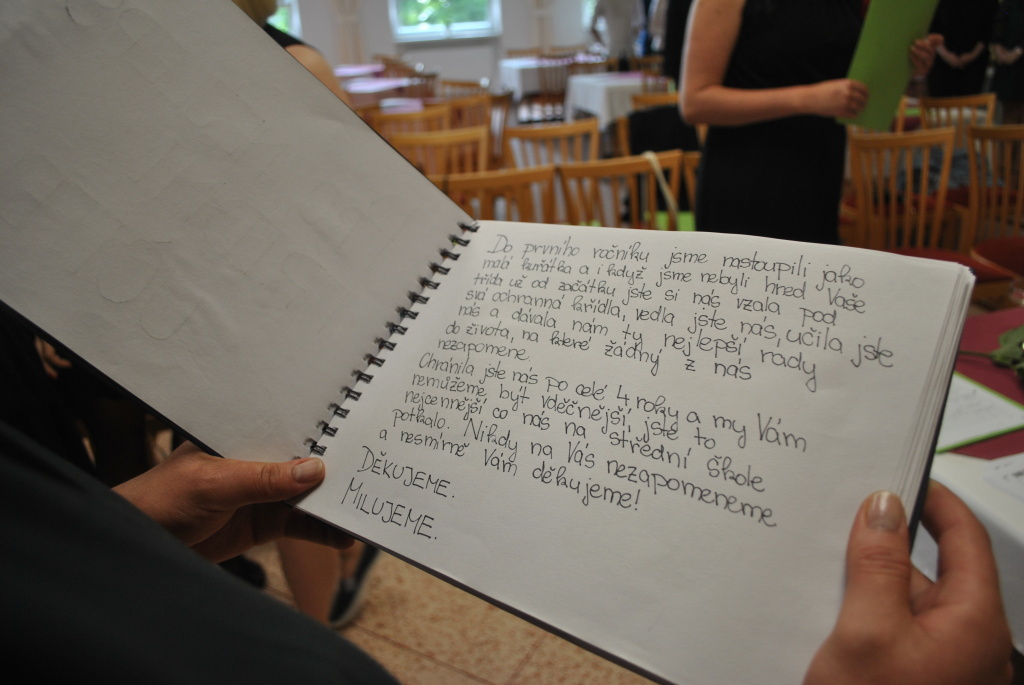 Do prvního ročníku jsme nastoupili jako
malá kuřátka a i když jsme nebyli hned Vaše
třída už od začátku jste si nás vzala pod
svá ochranná křídla, vedla jste nás, učila jste
nás a dávala nám ty nejlepší rady
do života, na které žádný z nás
nezapomene.
Chránila jste nás po celé 4 roky a my Vám
nemůžeme být vděčnější, jste to
nejcennější co nás na střední škole
potkalo. Nikdy na Vás nezapomeneme
a nesmírně Vám děkujeme!
DĚKUJEME.
MILUJEME.